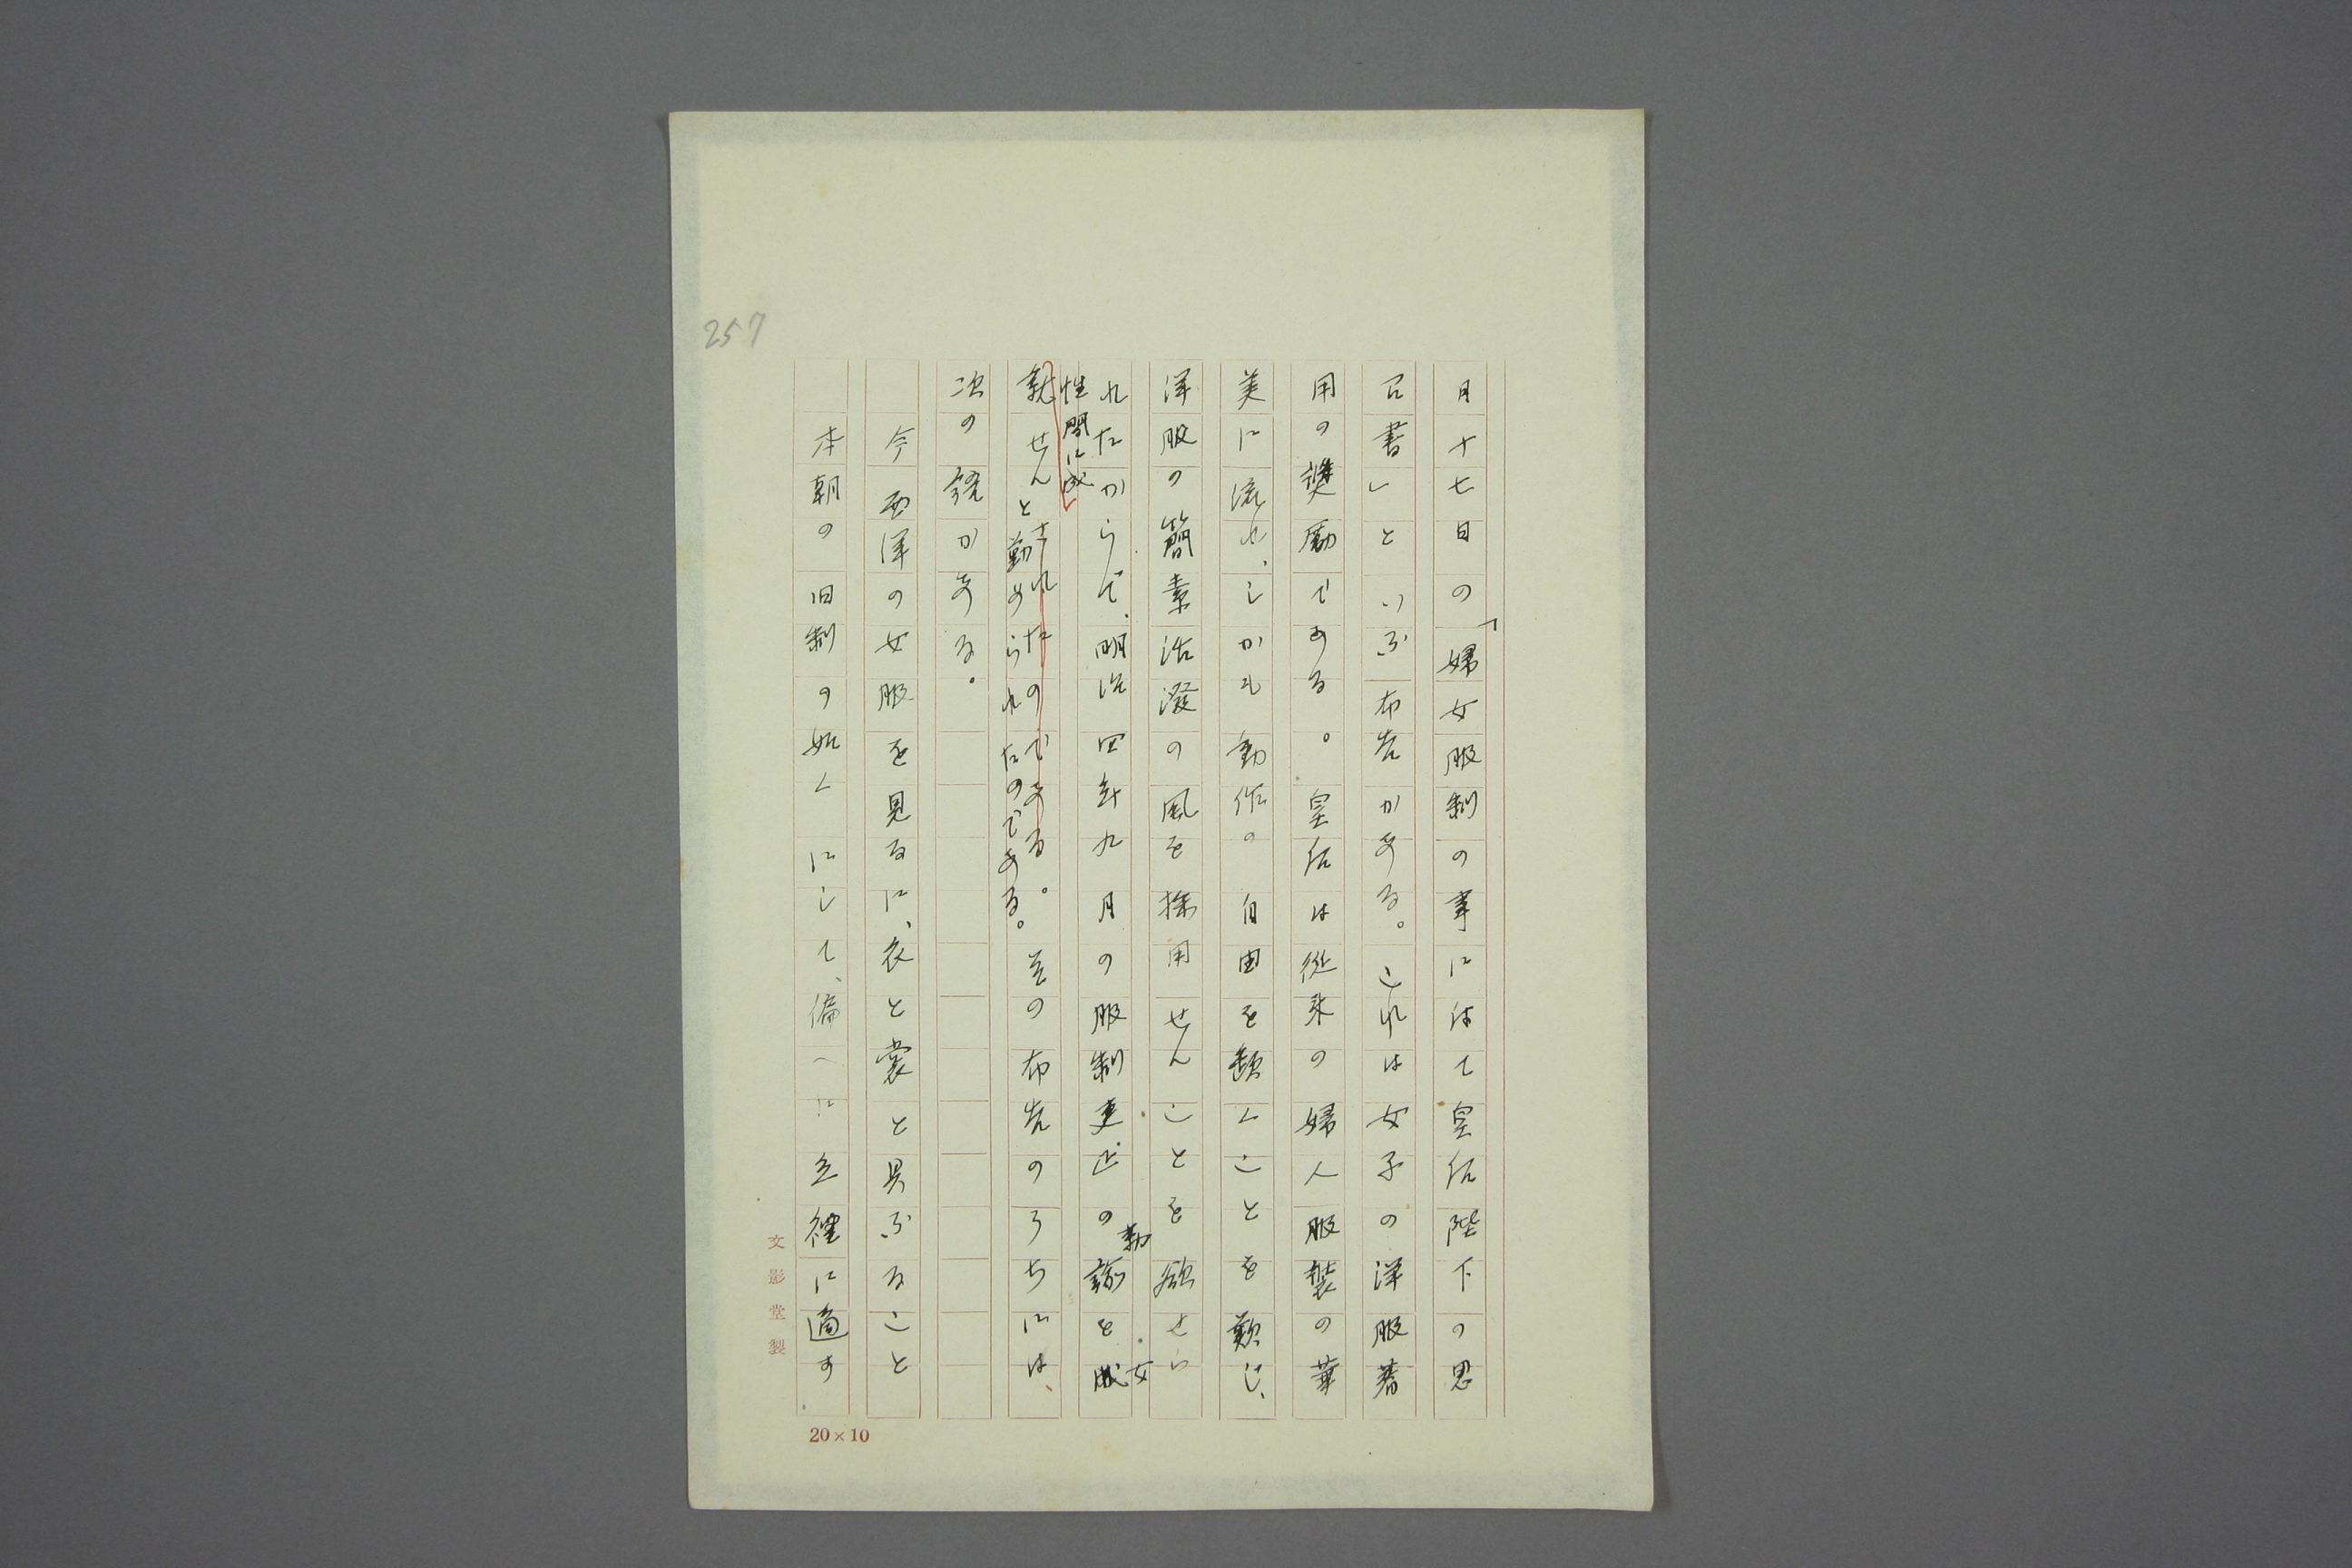 257
月十七日の「婦女服制の事に付て皇后陛下の思
召書」といふ布告がある。これは女子の洋服着
用の奬励である。皇后は從来の婦人服装の華
美に流れ、しかも動作の自由を頽くことを歎じ、
洋服の簡素活溌の風を採用せんことを欲せら
れたからで、明治四年九月の服制更正の勅諭を女
性間に成
就せんと勤められたのである。其の布告のうちには、
されたのである。
次の發がある。
今西洋の女服を見るに、衣と裳と具ふること
本朝の旧制の如くにして、偏へに立禮に適す
文影堂製
20×10